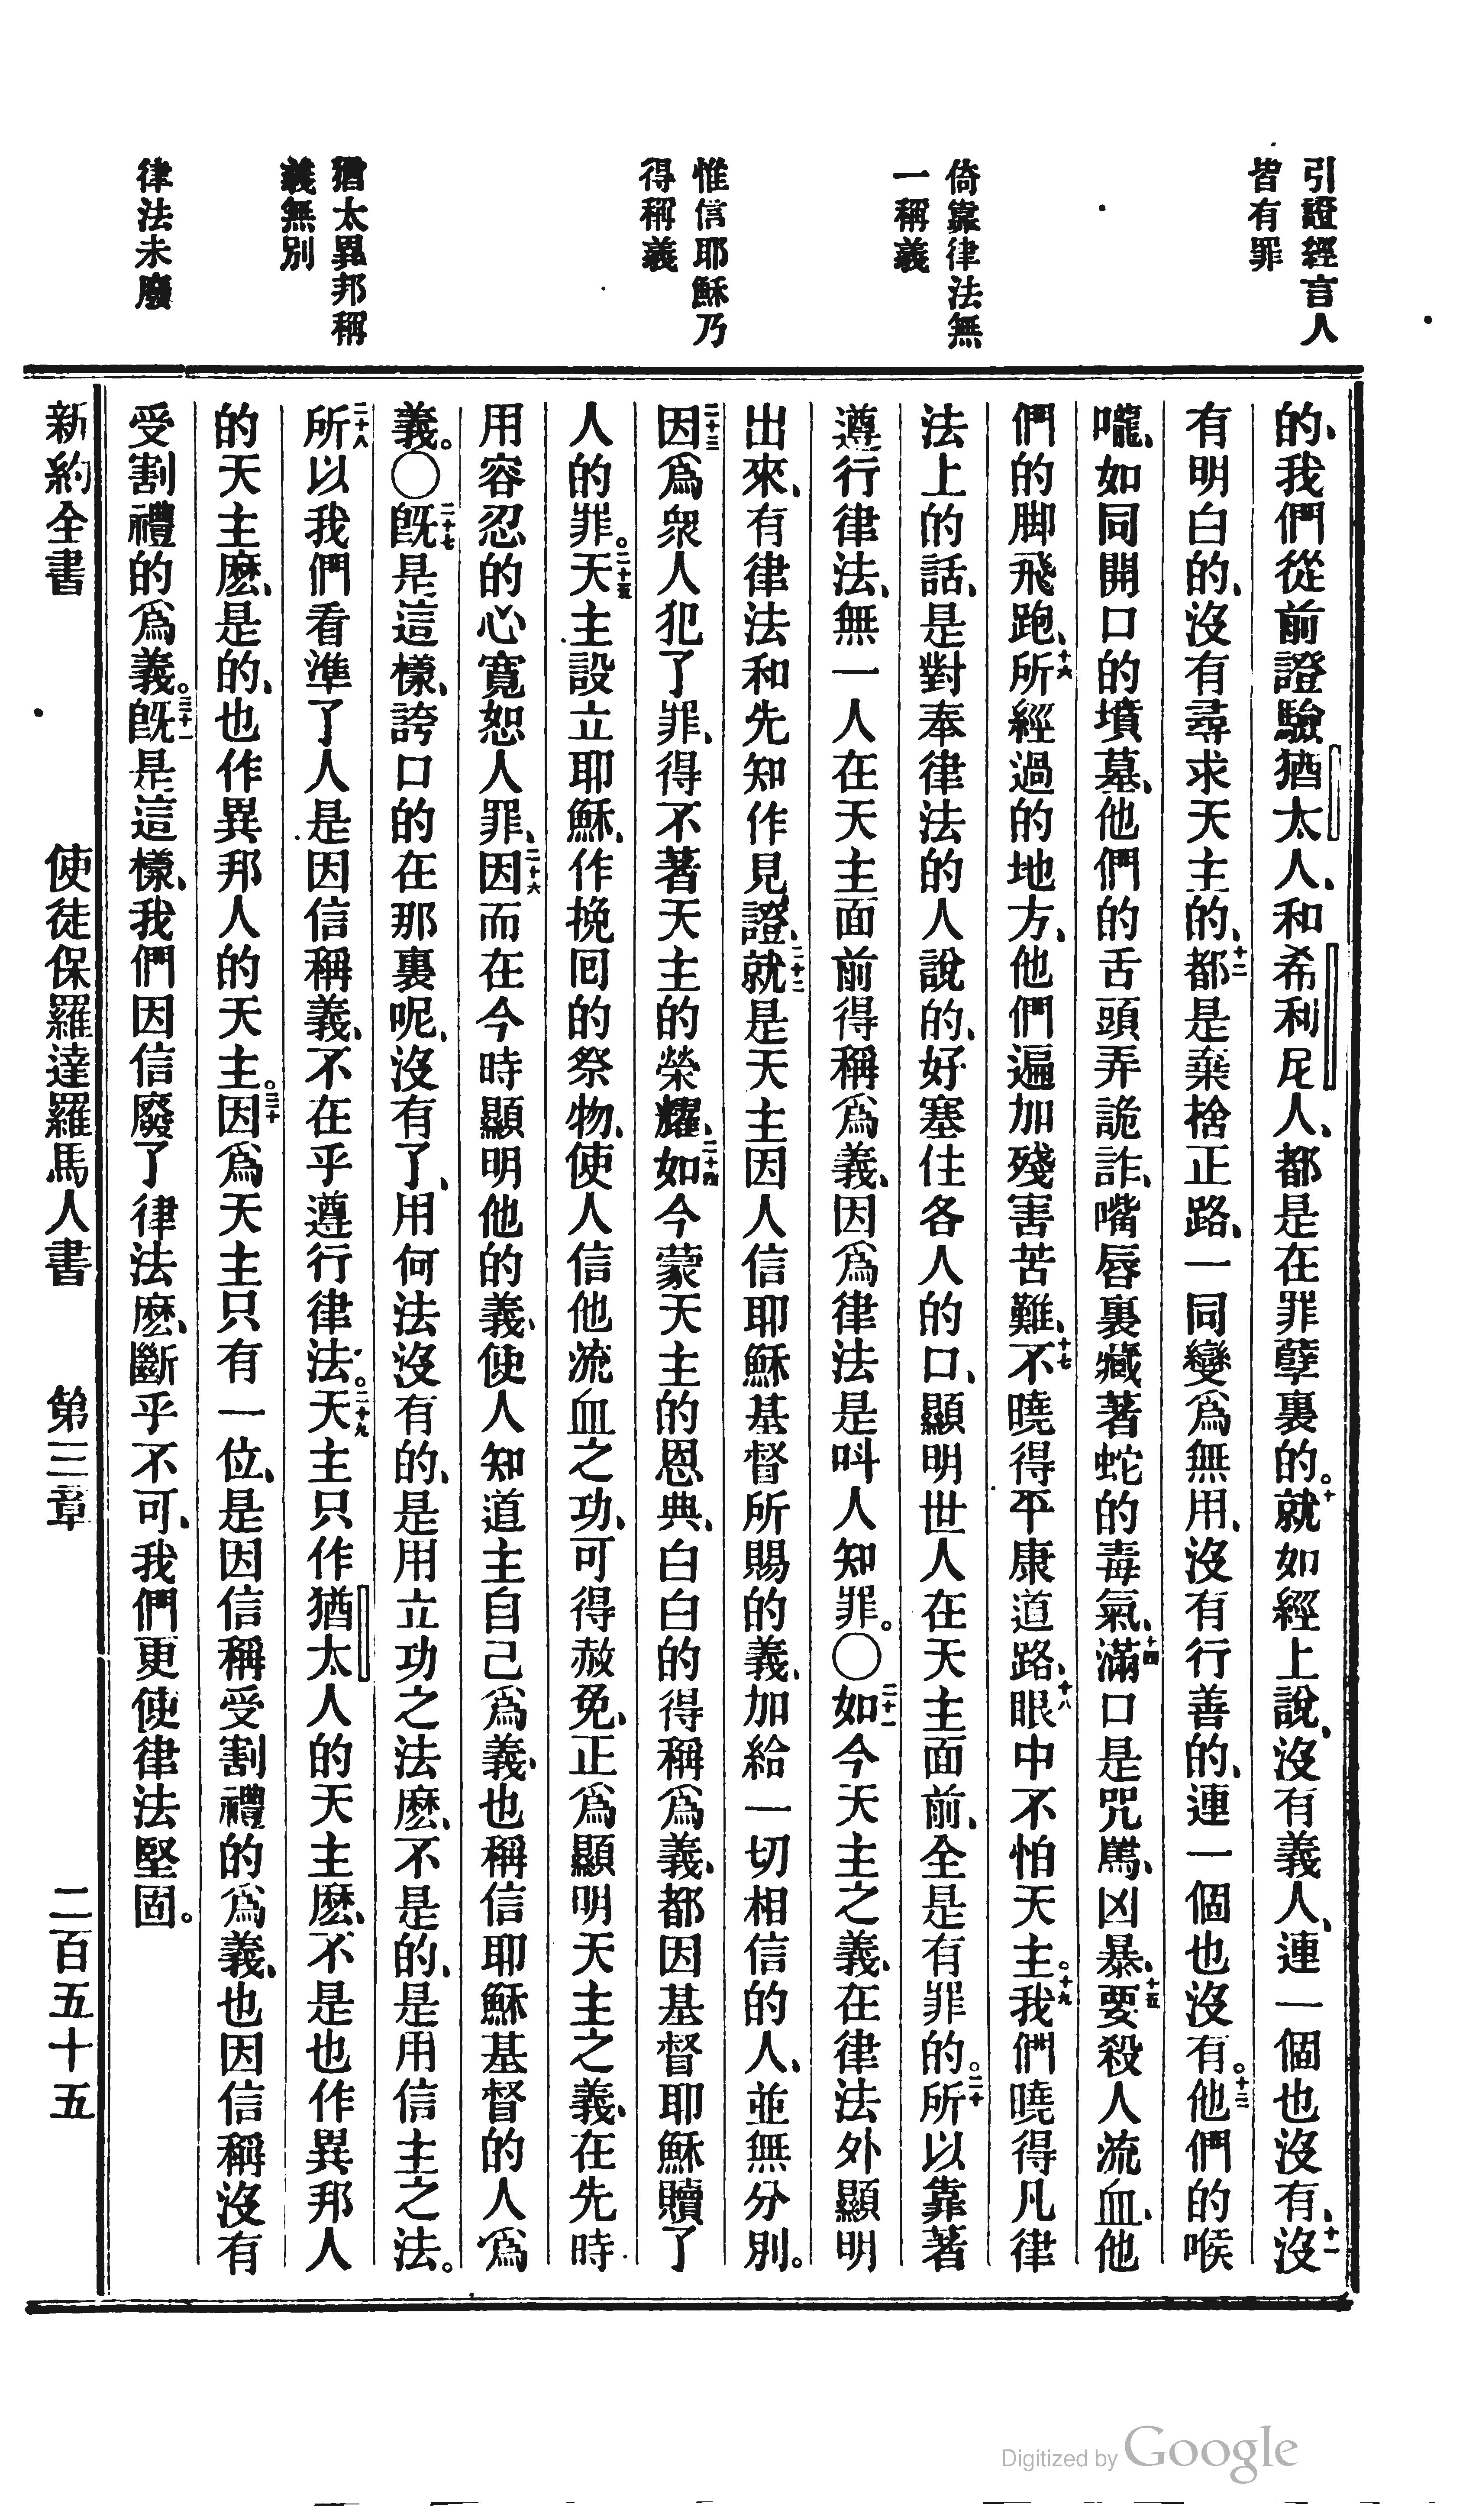 引證經言人
皆有罪
倚靠律法無
一稱義
惟信耶穌乃
得稱義
猶太異邦稱
義無別
律法未廢
的、我們從前證驗猶太人、和希利尼人、都是在罪孽裏的。十就如經上說、沒有義人、連一個也沒有、十一沒
有明白的、沒有尋求天主的、十二都是棄捨正路、一同變爲無用、沒有行善的、連一個也沒有。十三他們的喉
嚨、如同開口的墳墓、他們的舌頭弄詭詐、嘴唇裏藏著蛇的毒氣、十四滿口是咒罵、凶暴、十五要殺人流血、他
們的脚飛跑、十六所經過的地方、他們遍加殘害苦難、十七不曉得平康道路、十八眼中不怕天主。十九我們曉得凡律
法上的話、是對奉律法的人說的、好塞住各人的口、顯明世人在天主面前、全是有罪的。二十所以靠著
遵行律法、無一人在天主面前得稱爲義、因爲律法是呌人知罪。〇二十一如今天主之義、在律法外顯明
出來、有律法和先知作見證、二十二就是天主因人信耶穌基督所賜的義、加給一切相信的人、並無分別。
二十三因爲衆人犯了罪、得不著天主的榮耀、二十四如今蒙天主的恩典、白白的得稱爲義、都因基督耶穌贖了
人的罪。二十五天主設立耶穌、作挽回的祭物、使人信他流血之功、可得赦免、正爲顯明天主之義、在先時
用容忍的心寬恕人罪、二十六因而在今時顯明他的義、使人知道主自己爲義、也稱信耶穌基督的人爲
義。〇二十七旣是這樣、誇口的在那裏呢、沒有了、用何法沒有的、是用立功之法麽、不是的、是用信主之法。
二十八所以我們看準了人是因信稱義、不在乎遵行律法。二十九天主只作猶太人的天主麽、不是也作異邦人
的天主麽、是的、也作異邦人的天主。三十因爲天主只有一位、是因信稱受割禮的爲義、也因信稱沒有
受割禮的爲義。三十一旣是這樣、我們因信廢了律法麽、斷乎不可、我們更使律法堅固。
新約全書　使徒保羅達羅馬人書　第三章　二百五十五
Digitized by Google